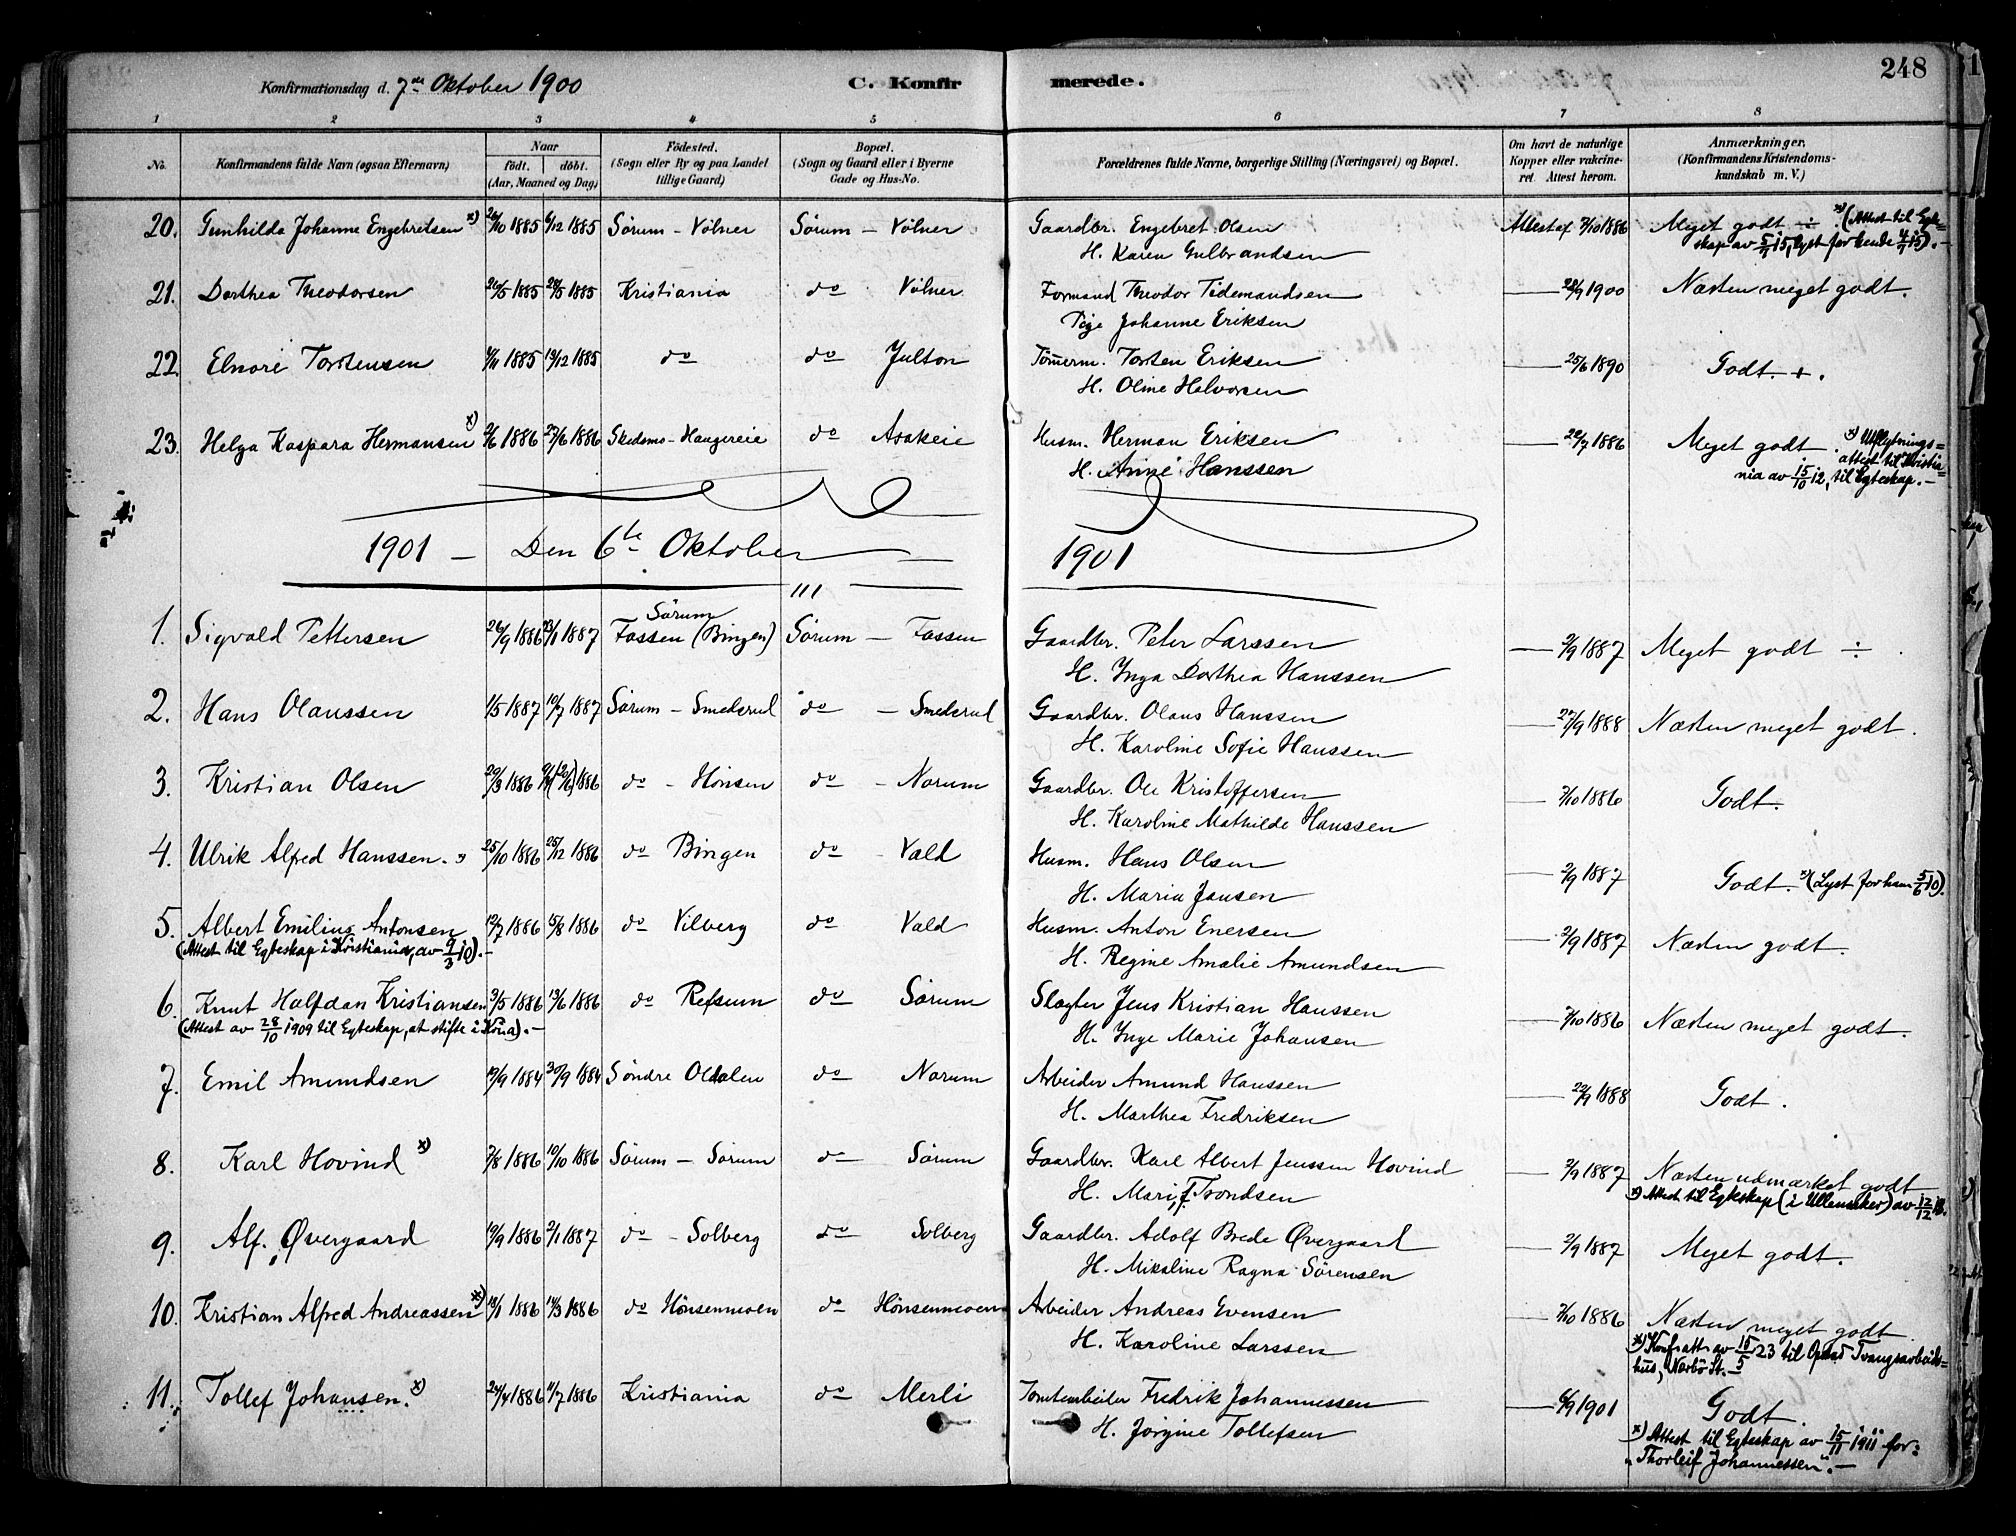 Konfirmationsdag d. 7de Oktober 1900 C. Konfir merede. 248
1 2 3 4 5 6 7 8
No. Konfirmandens fulde Navn (ogsaa Efternavn) Naar født. døbt. (Aar, Maaned og Dag) Fødested. (Sogn eller By og paa Landet tillige Gaard) Bopæl. (Sogn og Gaard eller i Byerne Gade og Hus-No. Forældrenes fulde Navne, borgerlige Stilling (Næringsvei) og Bopæl. Om havt de naturlige Kopper eller vakcineret. Attest herom. Anmærkninger. (Konfirmandens Kristendomskundskab m. V.)
20. Gunhilda Johanne Engebretsen x) 26/10 1885 6/12 1885 Sørum - Vølner Sørum - Vølner Gaardbr. Engebret Olsen Attest af 7/10 1886 Meget godt ÷ x) (Attest til Egte-
H. Karen Gulbrandsen skap av 5/ 15, lyst for hende 4/ 15). -
21. Dorthea Theodorsen 26/5 1885 1885 Kristiania do Vølner Formand Theodor Tidemandsen — 28/9 1900 Næsten meget godt.
Pige Johanne Eriksen
22. Elnore Torstensen 1885 13/12 1885 do do Julton Tømerm. Torsten Eriksen — 25/6 1890 Godt. +.
H. Oline Halvorsen
23. Helga Kaspara Hermansen x) 2/6 1886 27/6 1886 Skedsmo - Haugereie do Asakeie Husm. Herman Eriksen — 22/7 1886 Meget godt. x) Utflytnings=
H. Anne Hanssen attest til Kristia=
nia av 15/10 12, til Egteskap. -
1901 - Den 6te Oktober 1901
1. Sigvald Pettersen 26/9 1886 23/1 1887 Sørum Fossen (Bingen) Sørum - Fossen Gaardbr. Peter Larssen — 2/9 1887 Meget godt ÷
H. Inga Dorthea Hanssen
2. Hans Olaussen 1/5 1887 10/7 1887 Sørum - Smedsrud do - Smedsrud Gaardbr. Olaus Hanssen — 27/9 1888 Næsten meget godt.
H. Karoline Sofie Hanssen
3. Kristian Olsen 29/3 1886 1886 do - Hønsen do - Norum Gaardbr. Ole Kristoffersen — 7/10 1886 Godt.
H. Karoline Mathilde Hanssen
4. Ulrik Alfred Hanssen. 25/10 1886 25/12 1886 do Bingen do - Vald Husm. Hans Olsen — 2/9 1887 Godt. x) (Lyst for ham 5/6 10).
H. Maria Jansen
5. Albert Emilius Antonsen 12/7 1886 15/8 1886 do Vilberg do Vald Husm. Anton Enersen — 2/9 1887 Næsten godt.
(Attest til Egteskap i Kristiania, av 9/3 10). - H. Regine Amalie Amundsen
6. Knut Halfdan Kristiansen 3/5 1886 13/6 1886 do Refsum do Sørum Slagter Jens Kristian Hanssen — 7/10 1886 Næsten meget godt.
(Attest av 28/10 1909 til Egteskap, at stifte i Kr.a). - H. Inge Marie Johansen
7. Emil Amundsen 19/9 1884 30/9 1884 Søndre Oldalen do Norum Arbeider Amund Hanssen — 22/9 1888 Godt.
H. Marthea Fredriksen
8. Karl Hovind x) 7/8 1886 10/10 1886 Sørum - Sørum do Sørum Gaardbr. Karl Albert Jenssen Hovind — 2/9 1887 Næsten udmærket godt
H. Mari f. Trondsen x) Attest til Egteskap (i Ullensaker) av 12/12 18.
9. Alf. Øvergaard 19/9 1886 2/1 1887 do - Solberg do Solberg Gaardbr. Adolf Brede Øvergaard — 2/9 1887 Meget godt.
H. Mikaline Ragna Sørensen
10. Kristian Alfred Andreassen x) 18/1 1886 14/3 1886 do Hønsenmoen do Hønsenmoen Arbeider Andreas Evensen — 7/10 1886 Næsten meget godt.
H. Karoline Larssen x) Konf.att. av 15/5 23 til Opstad Tvangsarbeids-
hus, Nærbø St. -
11. Tollef Johansen. x) 24/4 1886 11/7 1886 Kristiania do Merli Tomtearbeider Fredrik Johannessen — 6/9 1901 Godt.
H. Jørgine Tollefsen x) Attest til Egteskap av 15/11 1911 for:
"Thorleif Johannessen". -